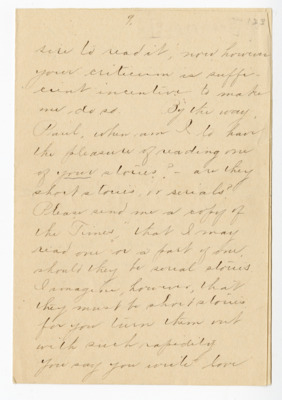 7.
123
sire to read it; now however
your criticism is suffi-
cient incentive to make
me do so. By the way,
Paul, when am I to have
the pleasure of reading one
of your stories? - are they
short stories, or serials?
Please send me a copy of
the Times, that I may
read one or a part of one,
should they be serial stories
I imagine, however, that
they must be short stories
for you turn them out
with such rapidity
You say you write love